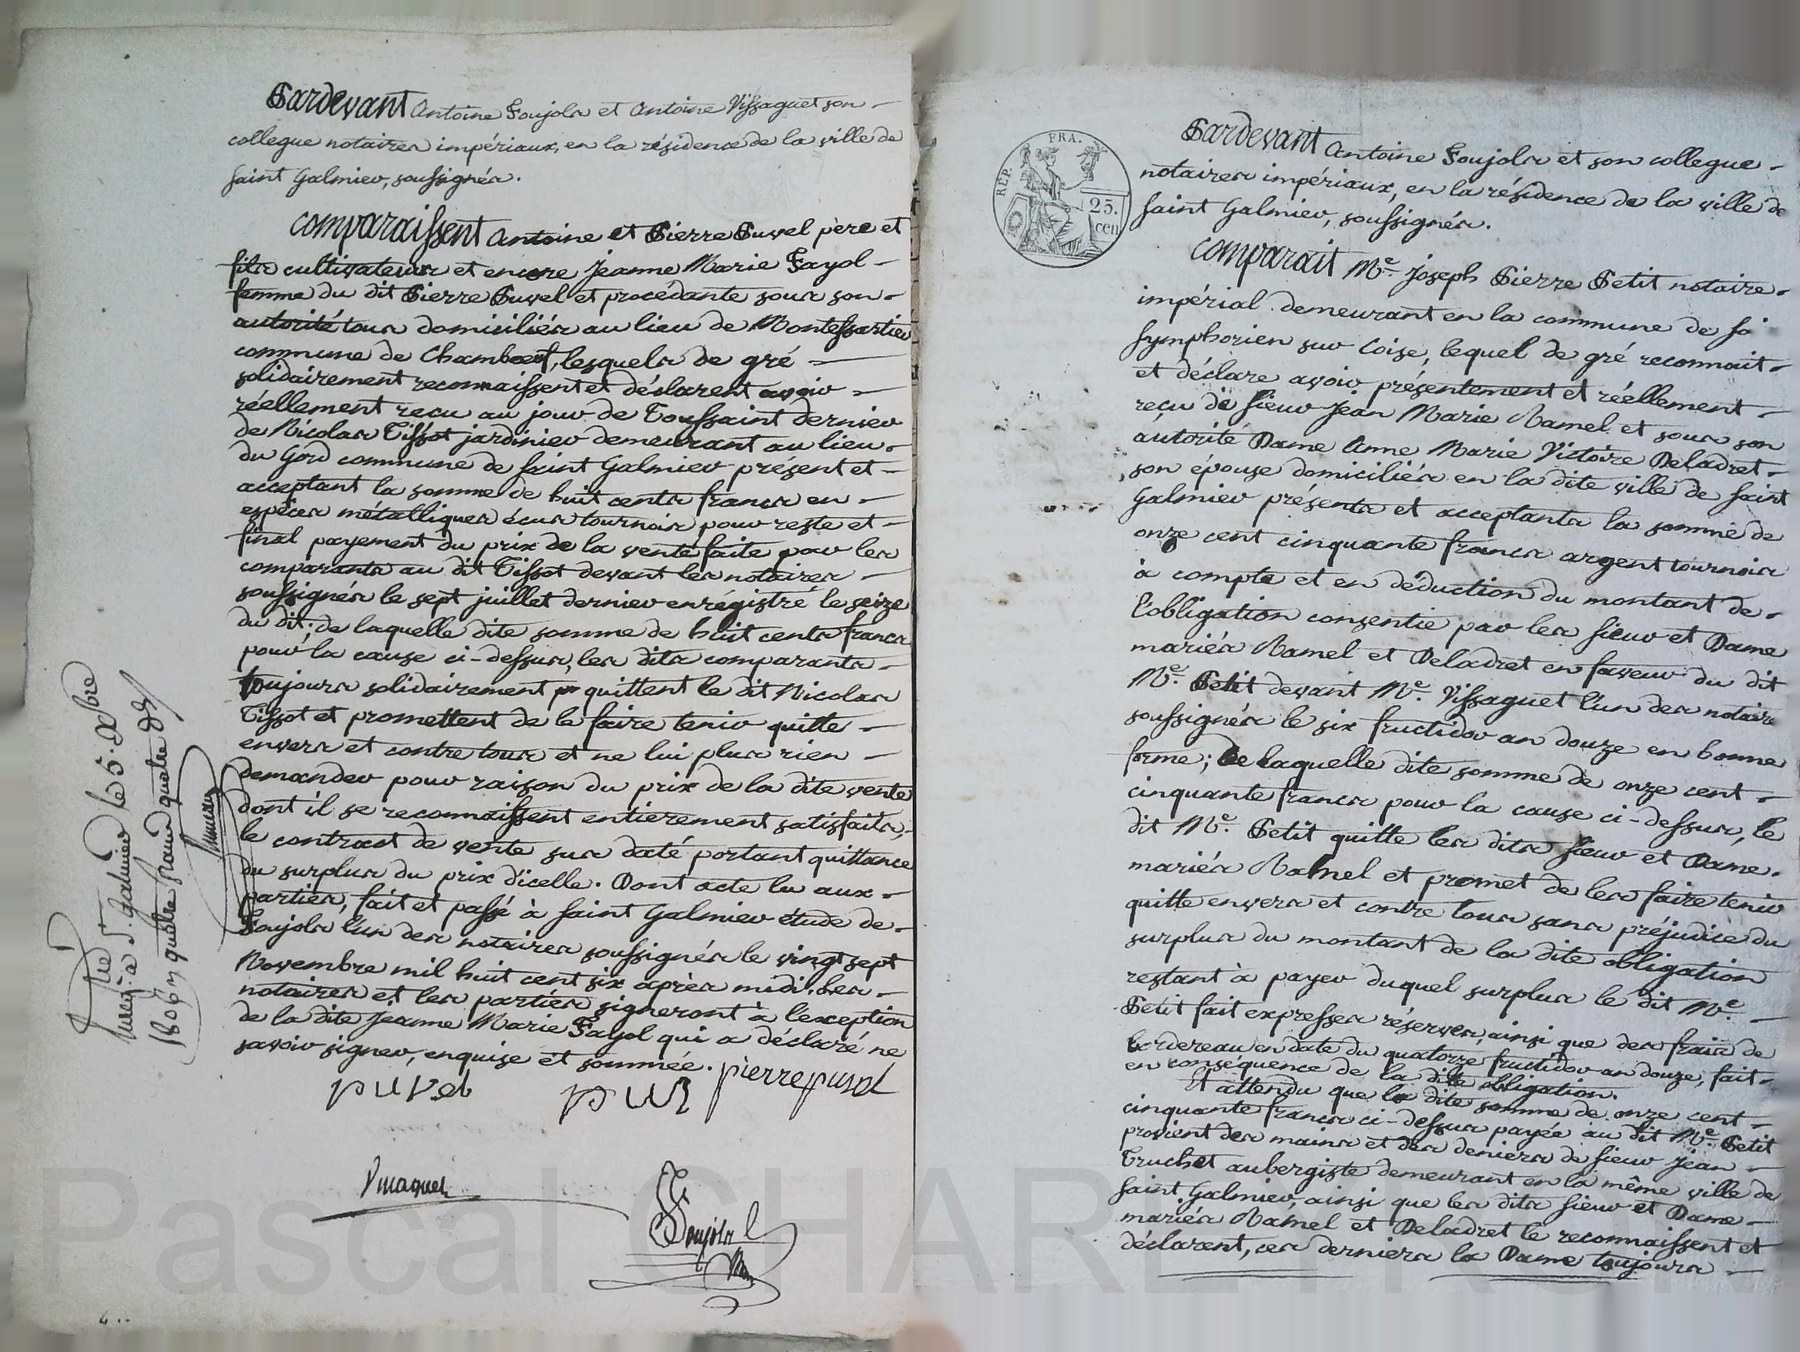 Pardevant Antoine Poujola et Antoine Vissaguet son
collegue notaires impériaux, en la résidence de la ville de
saint Galmier, soussignés.
comparaissent Antoine et Pierre Puvel père et
fils cultivateurs et encore Jeanne Marie Fayol
femme du dit Pierre Puvel et procédante sous son
autorité tous domiciliés au lieu de Montessartier
commune de Chambœuf, lesquels de gré
solidairement reconnaissent et déclarent avoir
réellement reçu au jour de Toussaint dernier
de Nicolas Tissot jardinier demeurant au lieu
du Gord commune de saint Galmier présent et
acceptant la somme de huit cents francs en
espèces métalliques écus tournois pour reste et
final payement du prix de la vente faite par les
comparants au dit Tissot devant les notaires
soussignés le sept juillet dernier enrégistré le seize
du dit; de laquelle dite somme de huit cents francs
pour la cause ci-dessus, les dits comparants
toujours solidairement quittent le dit Nicolas
Tissot et promettent de le faire tenir quitte
envers et contre tous et ne lui plus rien
demander pour raison du prix de la dite vente
dont il se reconnaissent entièrement satisfaits,
le contract de vente sus daté portant quittance
du surplus du prix d'icelle. Dont acte lu aux
parties, fait et passé à saint Galmier étude de
Poujola l'un des notaires soussignés le vingt sept
Novembre mil huit cent six après midi. Les
notaires et les parties signeront à l'exception
de la dite Jeanne Marie Fayol qui a déclaré ne
savoir signer, enquise et sommée.
puvel
pierre puvel
Poujola
à S. galmier le 5. Xbre
1806
Pascal CHAREYRON
RÉP. FRA.
25.
cen
Pardevant Antoine Poujola et son collegue
notaires impériaux, en la résidence de la ville de
saint Galmier, soussignés.
comparait Me. Joseph Pierre Petit notaire
impérial demeurant en la commune de st
symphorien sur Coise, lequel de gré reconnait
et déclare avoir présentement et réellement
reçu de sieur Jean Marie Ramel et sous son
autorité Dame Anne Marie Victoire Deladret
son épouse domiciliés en la dite ville de saint
Galmier présents et acceptants la somme de
onze cent cinquante francs argent tournois
à compte et en déduction du montant de
l'obligation consentie par les sieur et Dame
mariés Ramel et Deladret en faveur du dit
Me. Petit devant Me. Vissaguet l'un des notaire
soussignés le six fructidor an douze en bonne
forme; de laquelle dite somme de onze cent
cinquante francs pour la cause ci-dessus, le
dit Me. Petit quitte les dits sieur et Dame
mariés Ramel et promet de les faire tenir
quitte envers et contre tous sans préjudice du
surplus du montant de la dite obligation
restant à payer duquel surplus le dit Me.
Petit fait expresses réserves, ainsi que des frais de
bordereau en date du quatorze fructidor an douze, fait
en conséquence de la dite obligation.
Et attendu que la dite somme de onze cent
cinquante francs ci-dessus payée au dit Me. Petit
provient des mains et des deniers de sieur Jean
Truchet aubergiste demeurant en la même ville de
saint Galmier, ainsi que les dits sieur et Dame
mariés Ramel et Deladret le reconnaissent et
déclarent, ces derniers la Dame toujours